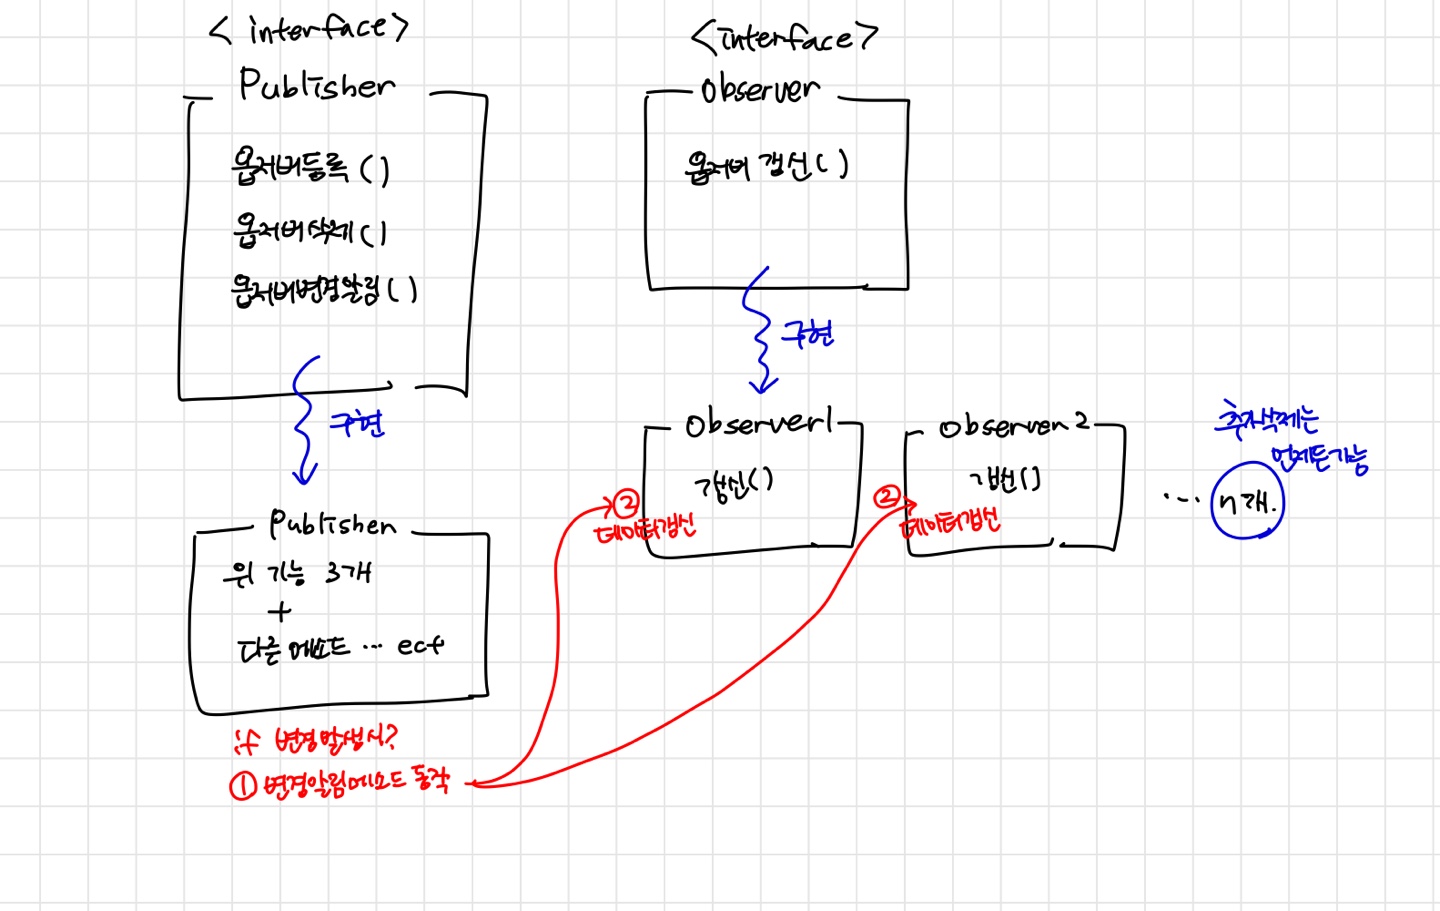 < interface >
Publisher
옵저버등록 ( )
옵저버삭제 ( )
옵저버변경알림 ( )
구현
Publisher
위 기능 3개
+
다른 메소드 ... ect
if 변경발생시?
① 변경알림메소드 동작
<interface>
Observer
옵저버 갱신( )
구현
Observer1
갱신( )
②
데이터갱신
Observer2
갱신( )
②
데이터갱신
추가삭제는
언제든가능
... n개.